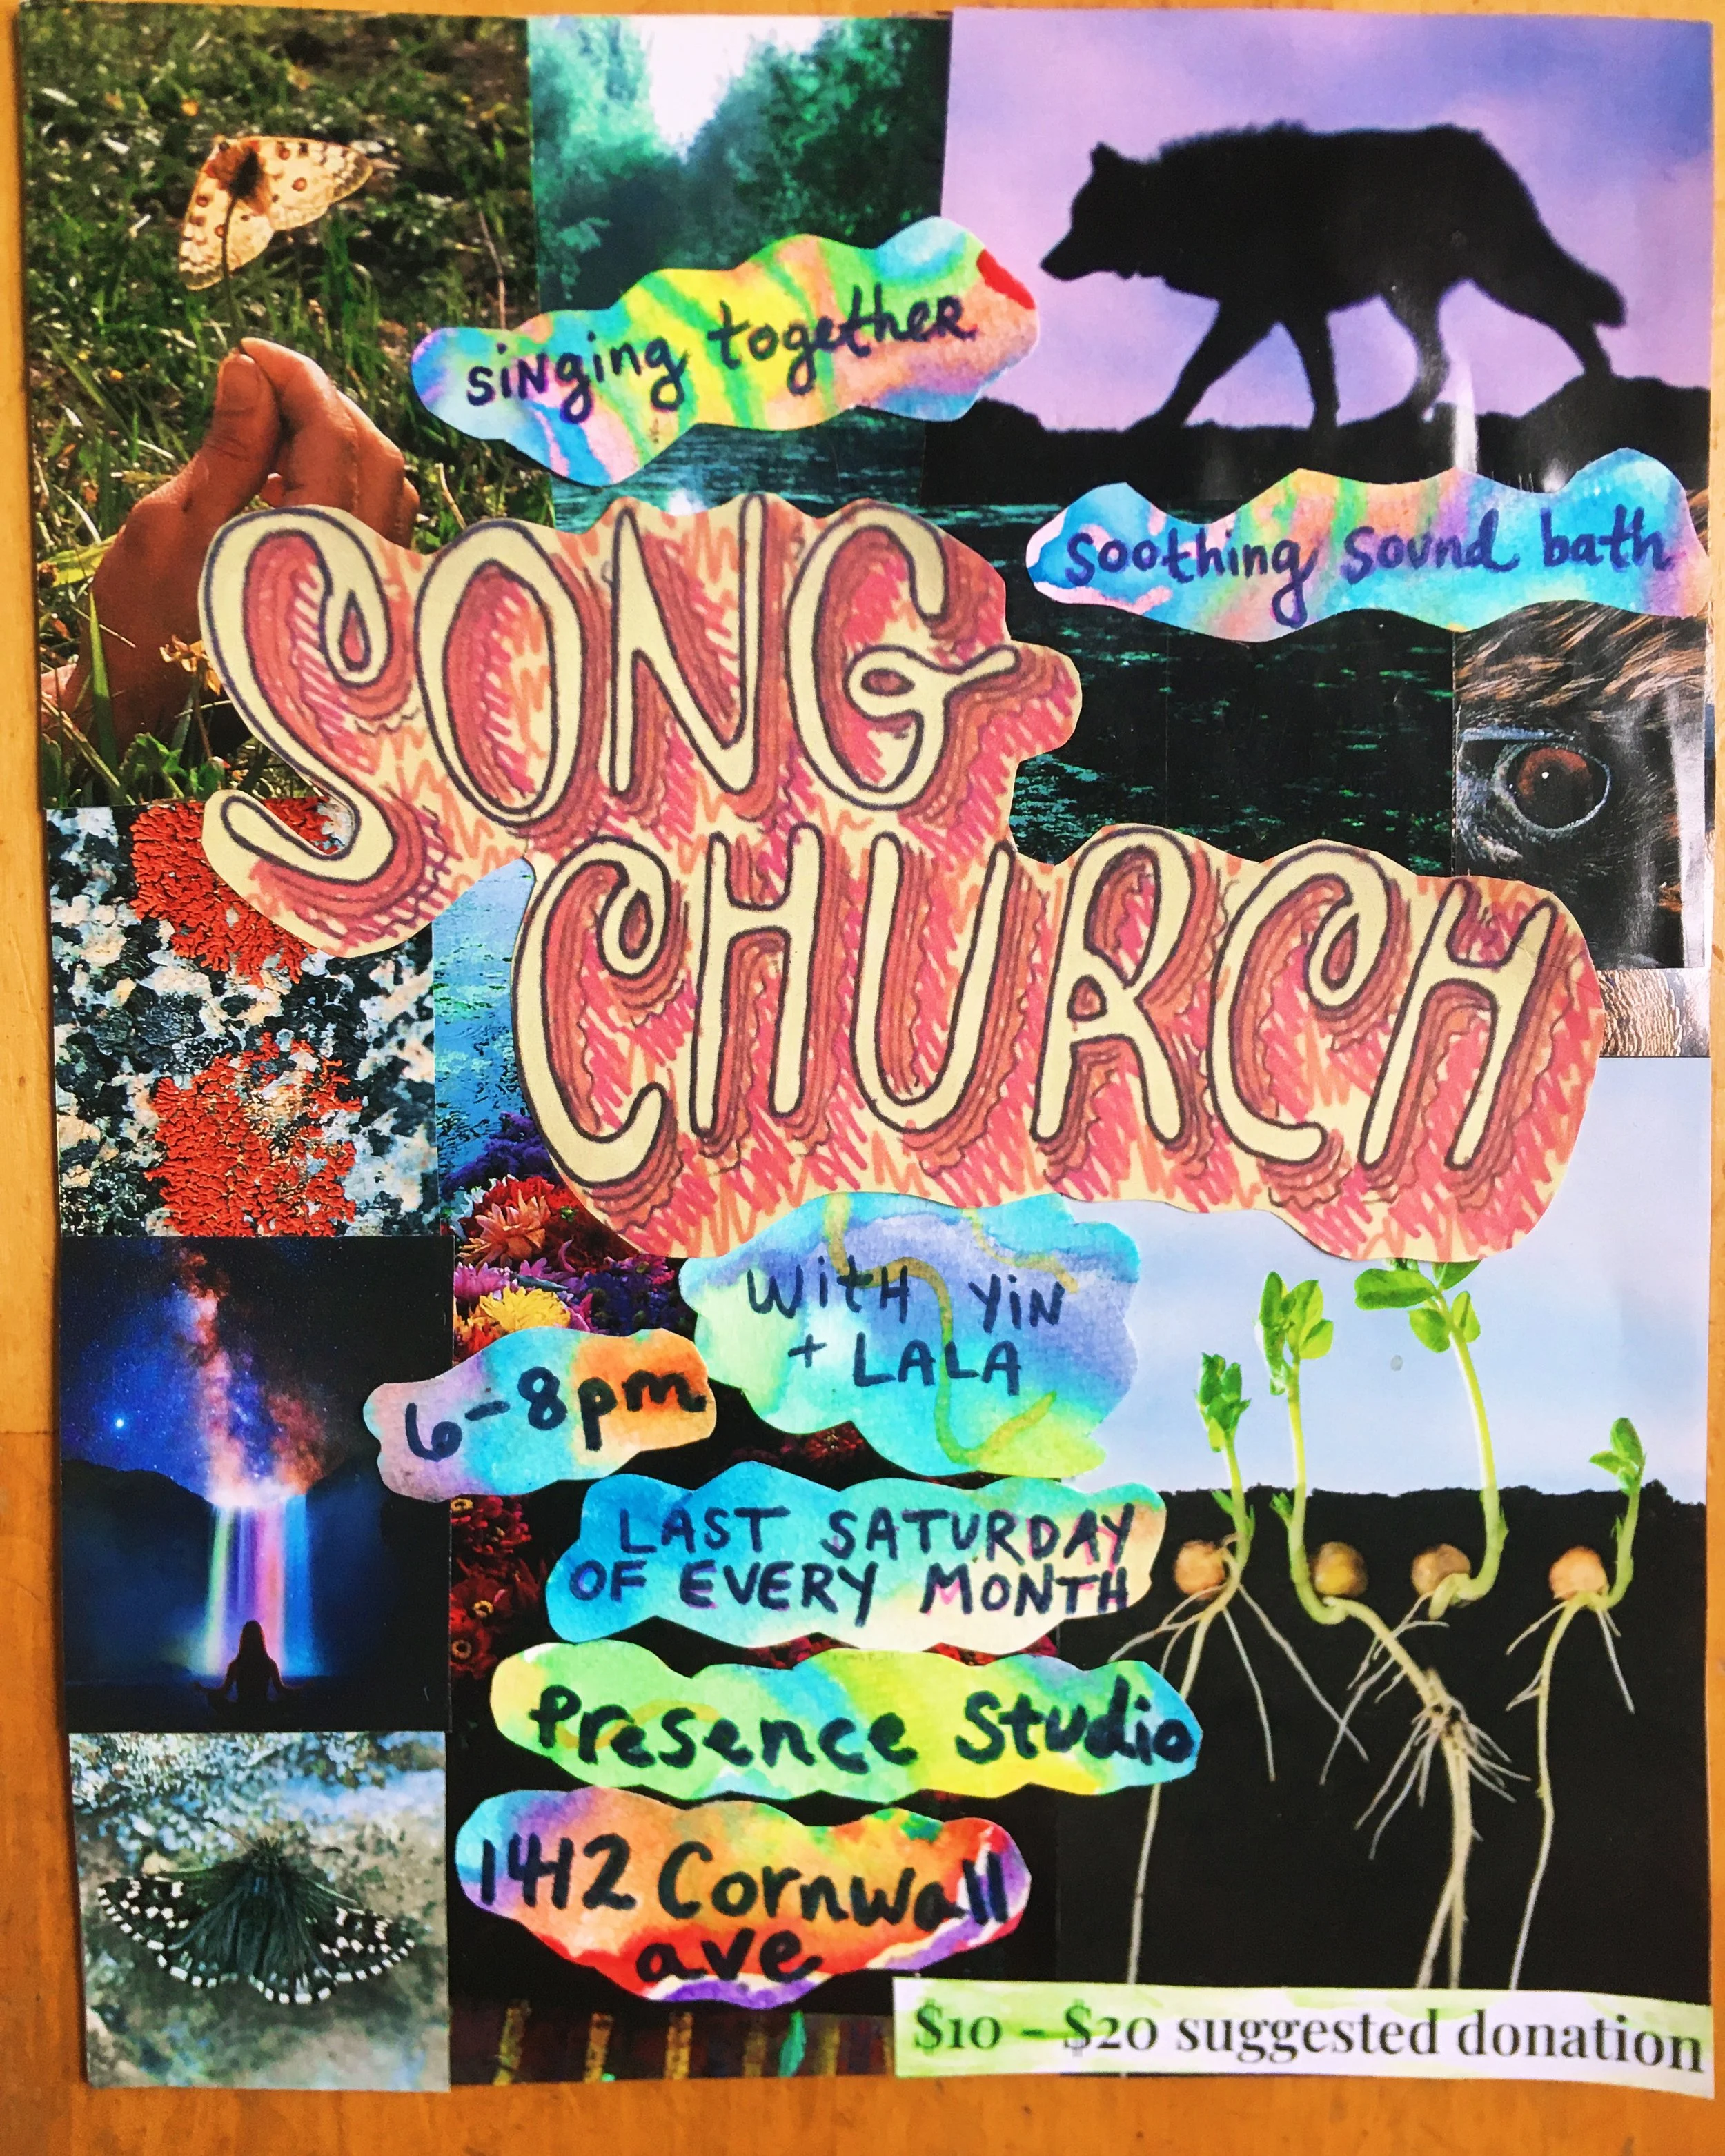 siNging togetheR
soothing sound bath
SONG
CHURCH
WitH YiN
+ LALA
6-8pm
LAST SATURDAY
OF EVERY MONTH
Presence Studio
1412 Cornwall
ave
$10 - $20 suggested donation